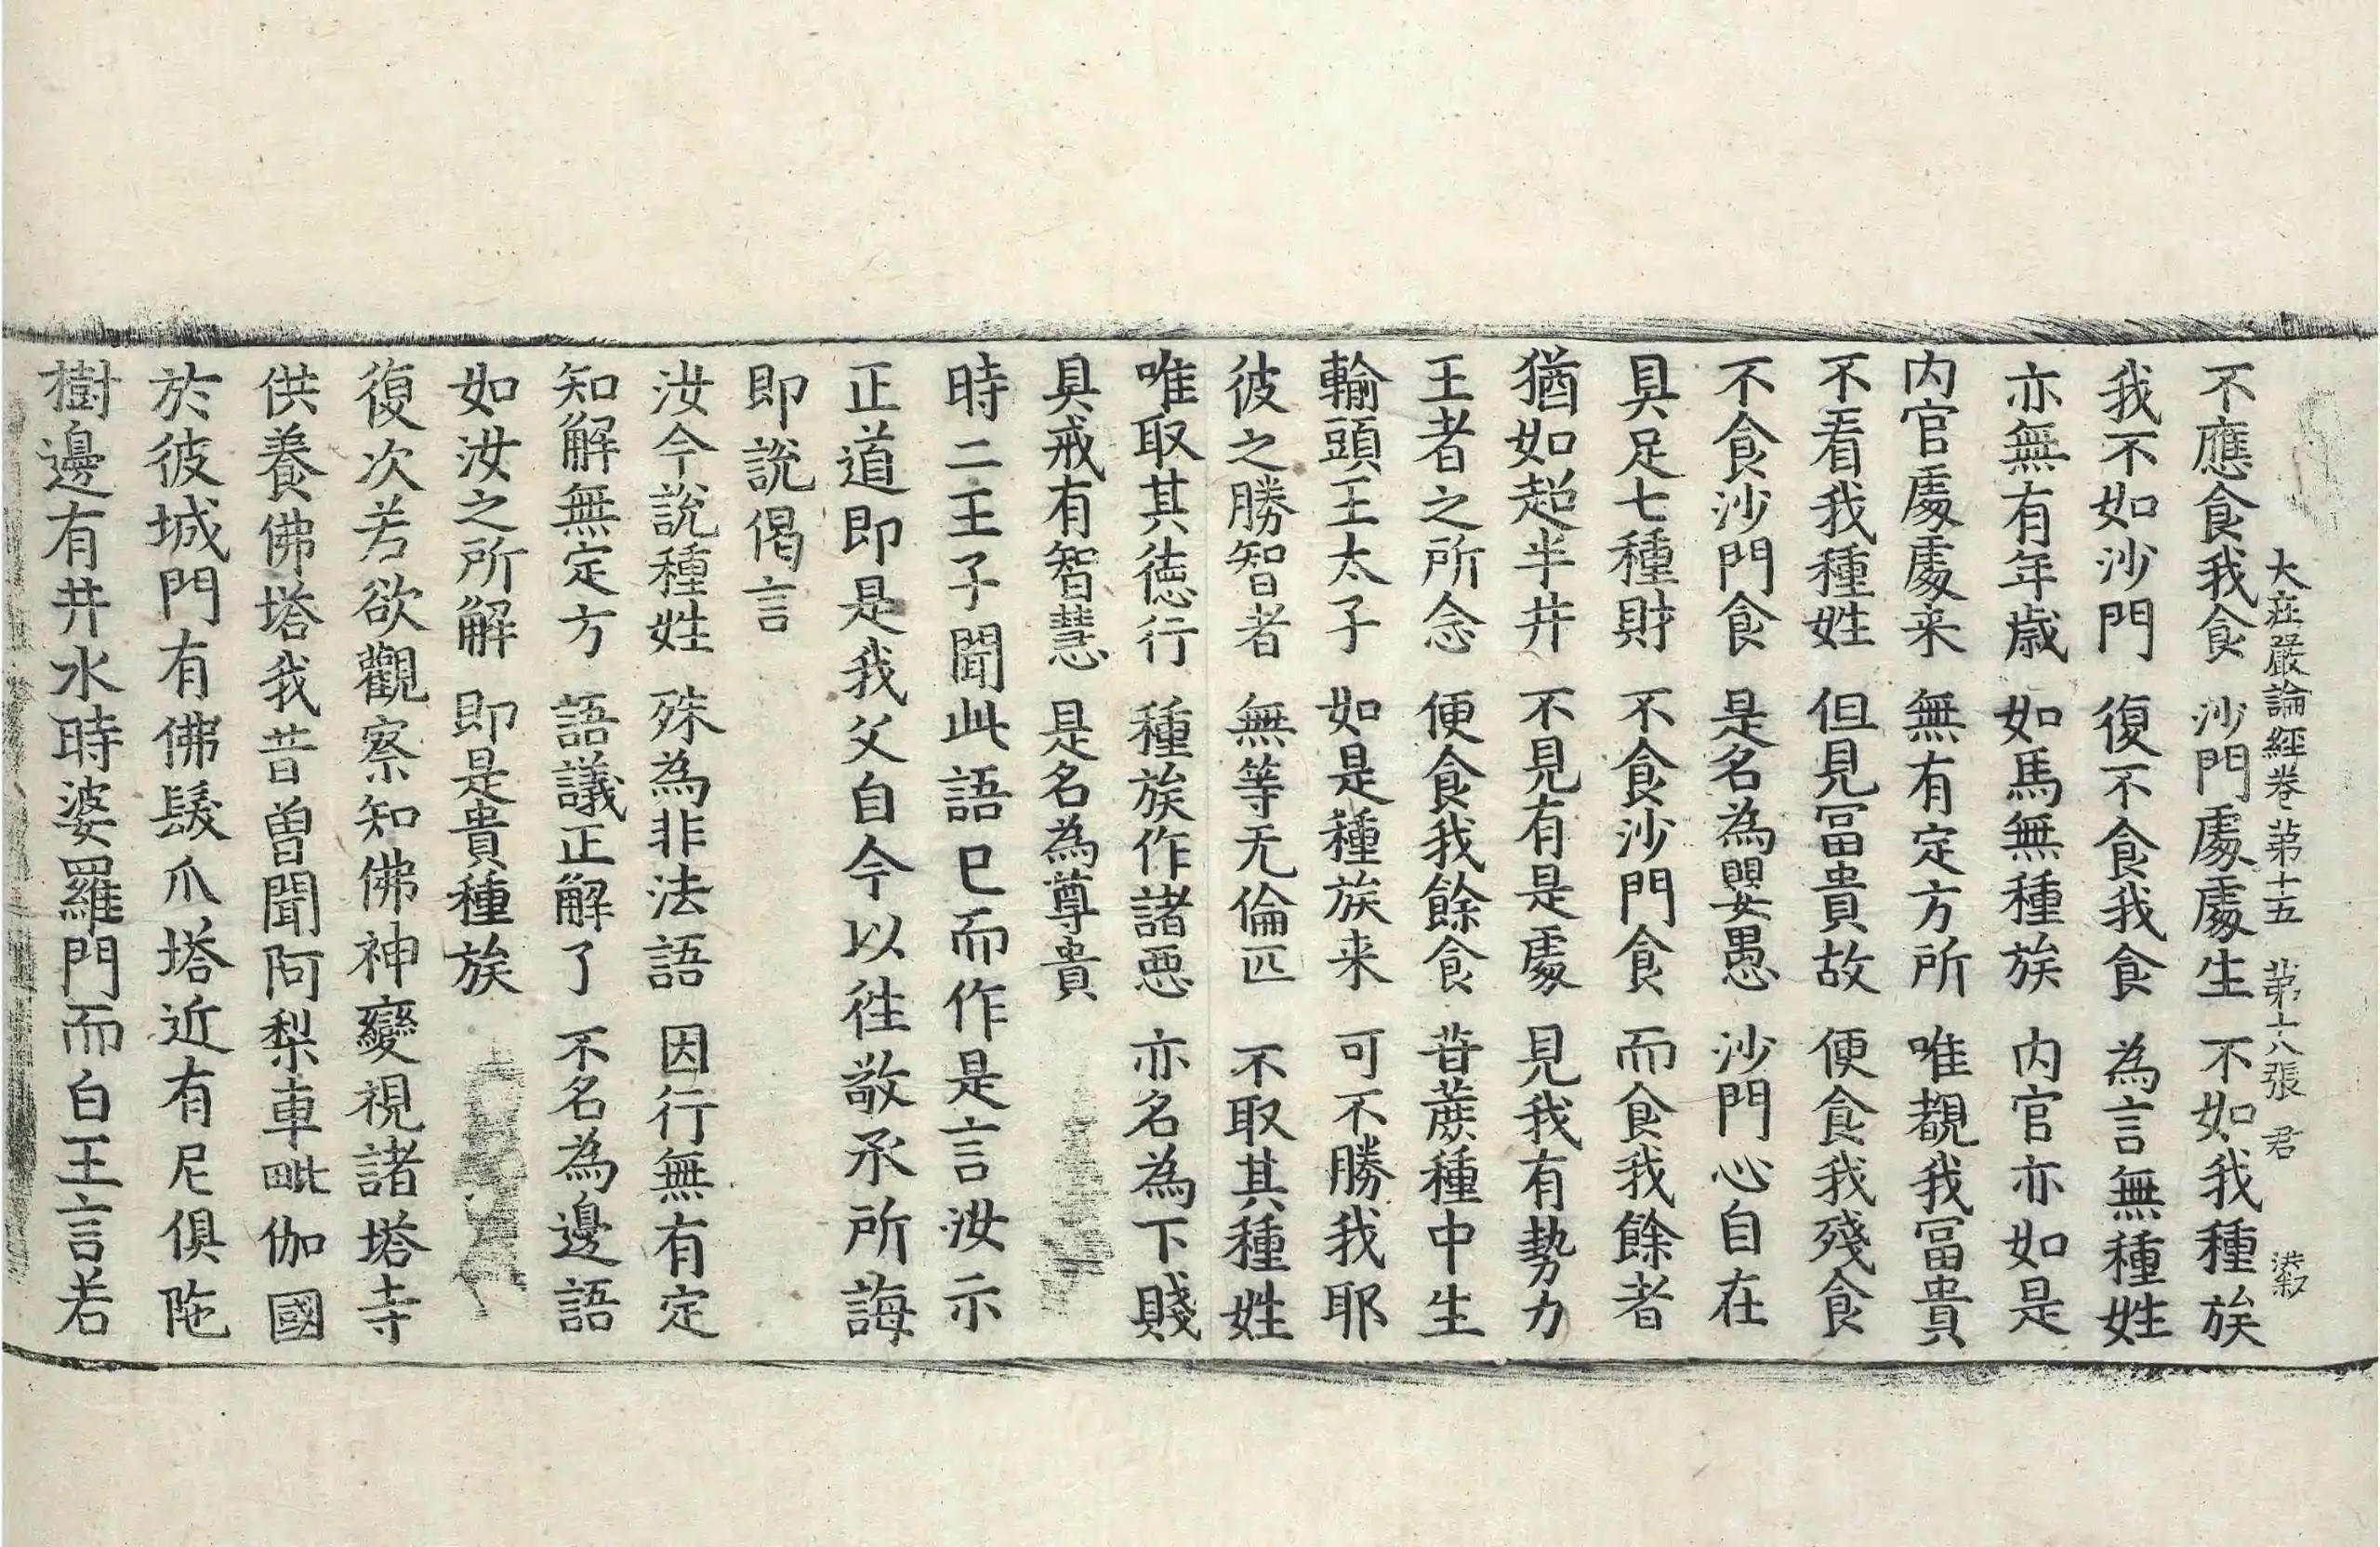 大莊嚴論經卷第十五 第十八張 君
不應食我食 沙門處處生 不如我種族
我不如沙門 復不食我食 為言無種姓
亦無有年歲 如馬無種族 内官亦如是
内官處處来 無有定方所 唯覩我冨貴
不看我種姓 但見冨貴故 便食我殘食
不食沙門食 是名為嬰愚 沙門心自在
具足七種財 不食沙門食 而食我餘者
猶如超半井 不見有是處 見我有勢力
王者之所念 便食我餘食 昔蔗種中生
輸頭王太子 如是種族来 可不勝我耶
彼之勝智者 無等无倫匹 不取其種姓
唯取其徳行 種族作諸惡 亦名為下賤
具戒有智慧 是名為尊貴
時二王子聞此語已而作是言汝示
正道即是我父自今以徃敬承所誨
即說偈言
汝今說種姓 殊為非法語 因行無有定
知解無定方 語議正解了 不名為邊語
如汝之所解 即是貴種族
復次若欲觀察知佛神變視諸塔寺
供養佛塔我昔曾聞阿梨車毗伽國
於彼城門有佛髮爪塔近有尼俱陁
樹邊有井水時婆羅門而白王言若